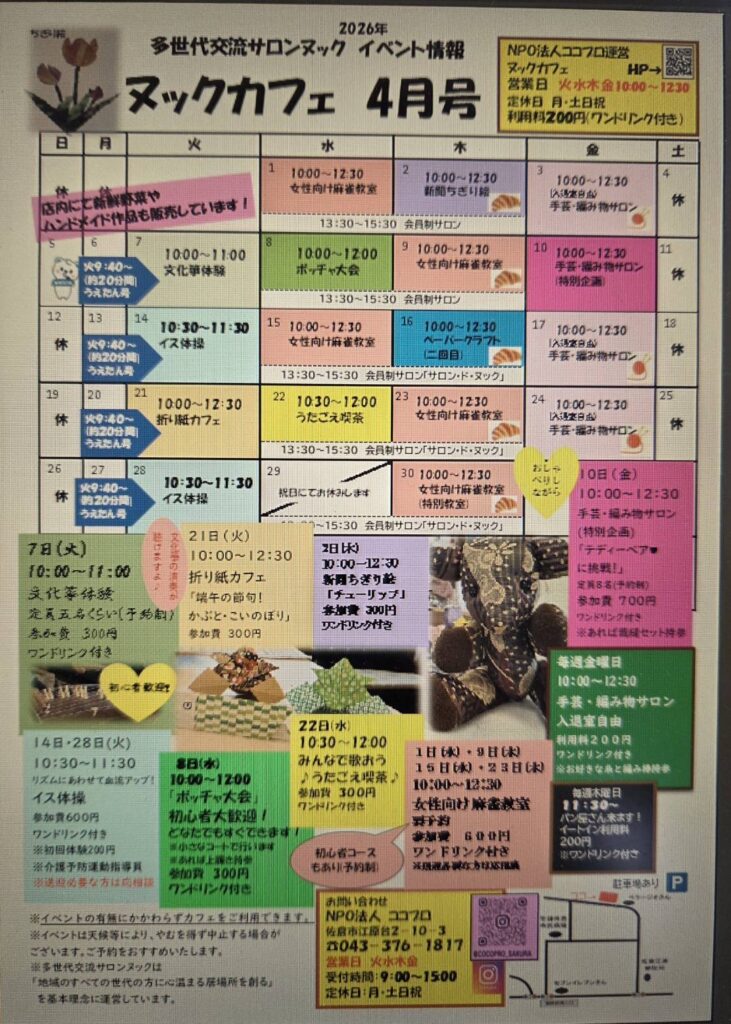 2026年
多世代交流サロンヌック イベント情報
ヌックカフェ 4月号
ちぎり絵
NPO法人ココプロ運営
ヌックカフェ HP→
営業日 火水木金10:00~12:30
定休日 月・土日祝
利用料200円(ワンドリンク付き)
日 月 火 水 木 金 土
休 休
店内にて新鮮野菜や
ハンドメイド作品も販売しています！
1 10:00~12:30
女性向け麻雀教室
2 10:00~12:30
新聞ちぎり絵
3 10:00~12:30
(入退室自由)
手芸・編み物サロン
4
休
13:30~15:30 会員制サロン
5
6
火9:40~
(約20分間)
うえたん号
7 10:00~11:00
文化箏体験
8 10:00~12:00
ボッチャ大会
9 10:00~12:30
女性向け麻雀教室
10 10:00~12:30
手芸・編み物サロン
(特別企画)
11
休
13:30~15:30 会員制サロン
12
休
13
火9:40~
(約20分間)
うえたん号
14
10:30~11:30
イス体操
15 10:00~12:30
女性向け麻雀教室
16 10:00~12:30
ペーパークラフト
(二回目)
17 10:00~12:30
(入退室自由)
手芸・編み物サロン
18
休
13:30~15:30 会員制サロン「サロン・ド・ヌック」
19
休
20
火9:40~
(約20分間)
うえたん号
21
10:00~12:30
折り紙カフェ
22 10:30~12:00
うたごえ喫茶
23 10:00~12:30
女性向け麻雀教室
24 10:00~12:30
(入退室自由)
手芸・編み物サロン
25
休
13:30~15:30 会員制サロン「サロン・ド・ヌック」
26
休
27
火9:40~
(約20分間)
うえたん号
28 10:30~11:30
イス体操
29
祝日にてお休みします
30 10:00~12:30
女性向け麻雀教室
(特別教室)
13:30~15:30 会員制サロン「サロン・ド・ヌック」
おしゃ
べりし
ながら
7日(火)
10:00~11:00
文化箏体験
定員五名くらい(予約制)
参加費 300円
ワンドリンク付き
文化箏の演奏が
聴けますよ♪
初心者歓迎！
21日(火)
10:00~12:30
折り紙カフェ
「端午の節句！
かぶと・こいのぼり」
参加費 300円
2日(木)
10:00~12:30
新聞ちぎり絵
「チューリップ」
参加費 300円
ワンドリンク付き
10日(金)
10:00~12:30
手芸・編み物サロン
(特別企画)
「テディーベア♥
に挑戦！」
定員8名(予約制)
参加費 700円
※あれば裁縫セット持参
毎週金曜日
10:00~12:30
手芸・編み物サロン
入退室自由
利用料200円
ワンドリンク付き
※お好きな糸と編み棒持参
14日・28日(火)
10:30~11:30
リズムにあわせて血流アップ！
イス体操
参加費600円
ワンドリンク付き
※初回体験200円
※介護予防運動指導員
※送迎必要な方は応相談
8日(水)
10:00~12:00
「ボッチャ大会」
初心者大歓迎！
どなたでもすぐできます！
※小さなコートで行います
※あれば上履き持参
参加費 300円
ワンドリンク付き
22日(水)
10:30~12:00
みんなで歌おう
♪うたごえ喫茶♪
参加費 300円
ワンドリンク付き
1日(水)・9日(木)
15日(水)・23日(木)
10:00~12:30
女性向け麻雀教室
要予約
参加費 600円
ワンドリンク付き
※送迎必要な方は応相談
初心者コース
もあり(予約制)
毎週木曜日
11:30~
パン屋さん来ます！
イートイン利用料
200円
※ワンドリンク付き
※イベントの有無にかかわらずカフェをご利用できます。
※イベントは天候等により、やむを得ず中止する場合が
ございます。ご予約をおすすめいたします。
※多世代交流サロンヌックは
「地域のすべての世代の方に心温まる居場所を創る」
を基本理念に運営しています。
お問い合わせ
NPO法人 ココプロ
佐倉市江原台2-10-3
☎043-376-1817
営業日 火水木金
受付時間:9:00~15:00
定休日:月・土日祝
@COCOPRO_SAKURA
駐車場あり P